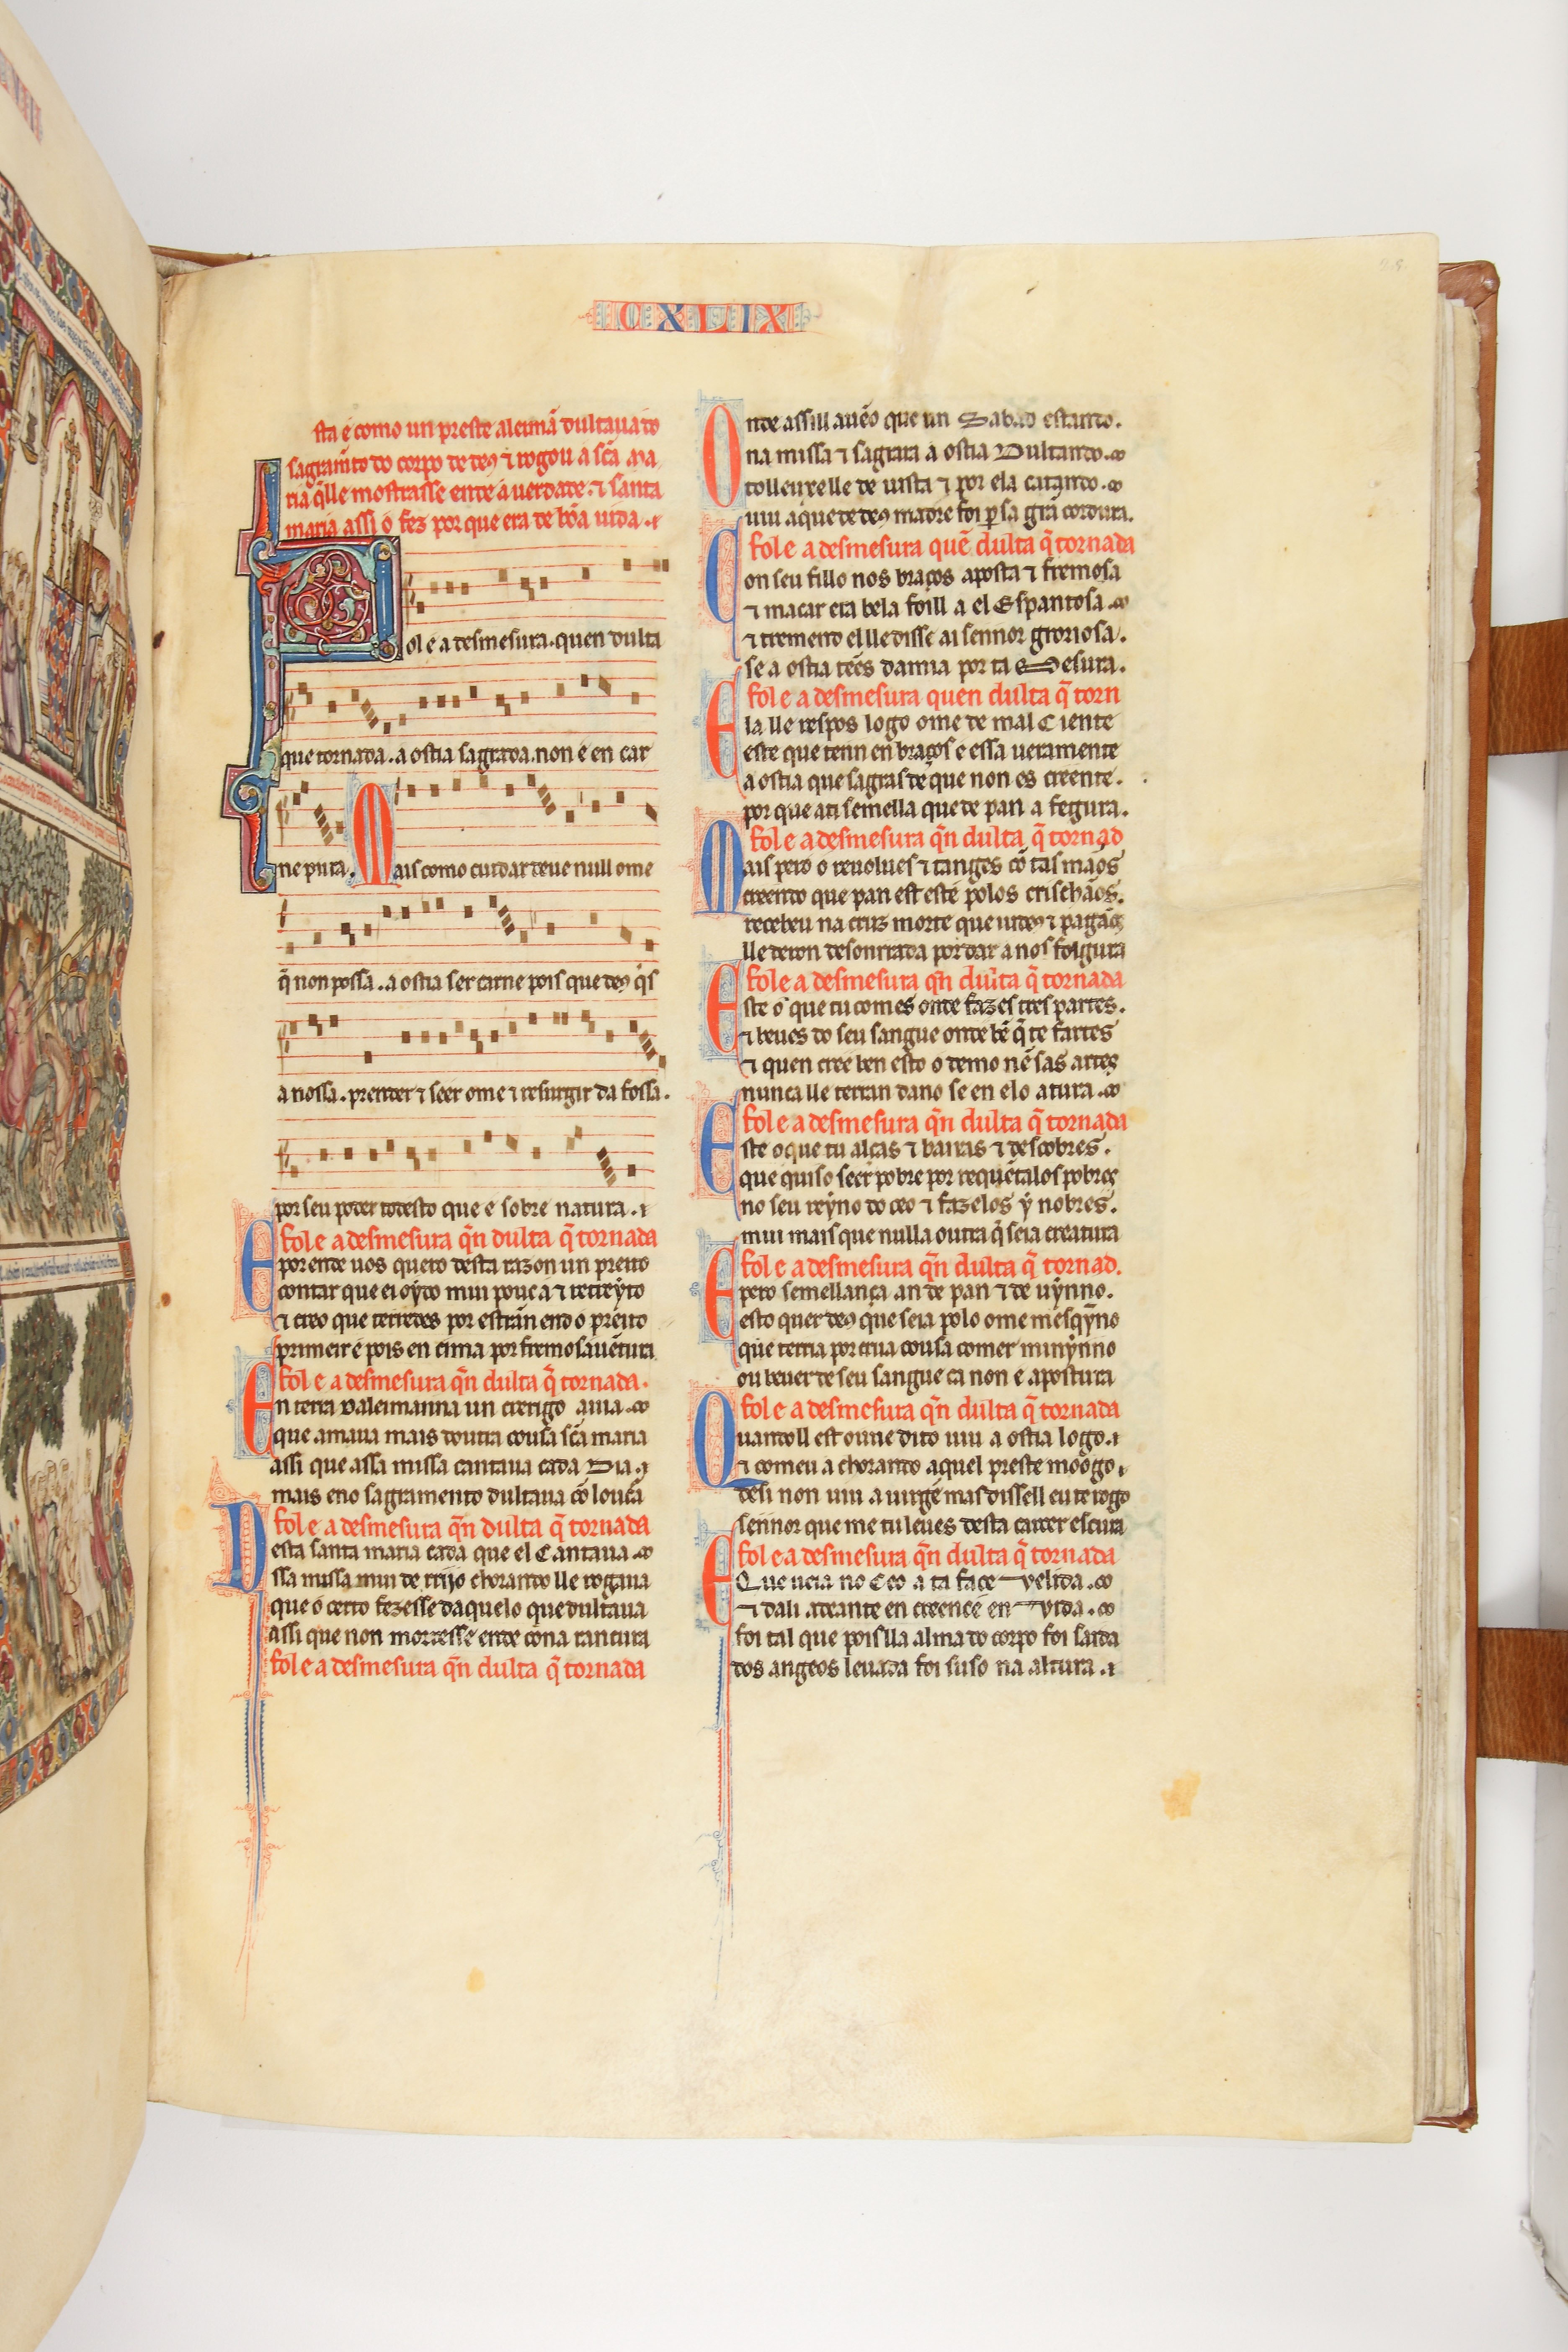 CXLIX
sta é como un preste alemã dultaua do
sagramẽto do corpo de deꝯ ⁊ rogou a scã ma
ria q̃lle mostrasse ende a uerdade. ⁊ santa
maria assi o fez por que era de bõa uida.
Fol e a desmesura. quen dulta
que tornada. a ostia sagrada. non e en car
ne pura. Mais como cuidar deue null ome
q̃ non possa. a ostia ser carne pois que deꝯ q̇s
a nossa. prender ⁊ seer ome ⁊ resurgir da fossa.
por seu poder todesto que e sobre natura.
fol e a desmesura q̃n dulta q̃ tornada
E porende uos quero desta razon un preito
contar que ei oỹdo mui pouc á ⁊ retreỹto
⁊ creo que terredes por estrãn endo o preito
primeir e pois en cima por fremosa uẽtura
fol e a desmesura q̃n dulta q̃ tornada.
En terra dalemanna un crerigo auia.
que amaua mais doutra cousa scã maria
assi que assa missa cantaua cada dia.
mais eno sagramento dultaua cõ loucã
fol e a desmesura q̃n dulta q̃ tornada
Desta santa maria cada que el Cantaua.
ssa missa mui de rrijo chorando lle rogaua
que o certo fezesse daquelo que dultaua
assi que non morresse ende cõna rancura
fol e a desmesura q̃n dulta q̃ tornada
Onde assill auẽo que un Sabad estando.
na missa ⁊ sagrara a ostia Dultando.
tolleuxelle de uista ⁊ por ela catando.
uiu a que de deꝯ madre foi ꝑ sa grã cordura.
fol e a desmesura quẽ dulta q̃ tornada
Con seu fillo nos braços aposta ⁊ fremosa
⁊ macar era bela foill a el Espantosa.
⁊ tremendo el lle disse ai sennor groriosa.
se a ostia tẽes damia por ta Mesura.
fol e a desmesura quen dulta q̃ torn
Ela lle respos logo ome de mal Ciente
este que tenn en braços e essa ueramente
a ostia que sagraste que non es creente.
por que ati semella que de pan a fegura.
fol e a desmesura q̃n dulta q̃ tornad
Mais pero o reuolues ⁊ tanges cõ tas mãos
creendo que pan est este polos crischãos.
recebeu na cruz morte que iudeꝯ ⁊ pagãos
lle deron desonrrada por dar a nos folgura
fol e a desmesura q̃n dulta q̃ tornada
Este o que tu comes onde fazes tres partes.
⁊ beues do seu sangue onde bẽ q̃ te fartes
⁊ quen cree ben esto o demo nẽ sas artes
nunca lle terran dano se en elo atura.
fol e a desmesura q̃n dulta q̃ tornada
Este o que tu alças ⁊ baixas ⁊ descobres.
que quiso seer pobre por requẽtalos pobres
no seu reỹno do ceo ⁊ fazelos ỹ nobres.
mui mais que nulla outra q̃ seia creatura
fol e a desmesura q̃n dulta q̃ tornad.
E pero semellança an de pan ⁊ de uỹnno.
esto quer deꝯ que seia polo ome mesqỹno
que terria por crua cousa comer minỹnno
ou beuer de seu sangue ca non e apostura
fol e a desmesura q̃n dulta q̃ tornada
Quantoll est oune dito uiu a ostia logo.
⁊ comeu a chorando aquel preste mõogo.
desi non uiu a uirgẽ mas dissell eu te rogo
sennor que me tu leues desta carcer escura
fol e a desmesura q̃n dulta q̃ tornada
E Que ueia no Ceo a ta façe velida.
⁊ dali adeante en creence en vida.
foi tal que poislla alma do corpo foi saida
dos angeos leuada foi suso na altura.